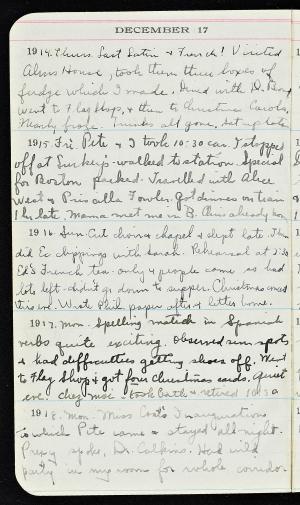 DECEMBER 17
1914. Thurs. Last Latin & French! Visited
Alms House, took them three boxes of
fudge which I made. Dined with D.
went to Flag Shop, & then to Christmas Carols.
Nearly froze. Trunks all gone. Set up late
1915 Fri. Pete & I took 10:30 car. I stopped
off at walked to station. Special
for Boston packed. Travelled with Alice
West & Priscilla Fowler. Got dinner on train
1 hr. late. Mama met me in B. Chris already
1916. Sun. Cut choir & chapel & slept late. Then
did Ec clippings with Sarah. Rehearsal at 2:30
Ed's French tea. only 4 people came so had
lots left. didn't go down to supper. Christmas
this eve. Wrote Phil. paper after & letter home.
1917. Mon. Spelling match in Spanish
verbs quite exciting. Observed sun spots
& had difficulties getting shoes off. Went
to Flag Shop & got four Christmas cards. Quiet
eve. chez moi. took bath & retired 10:30
1918. Mon. Miss Inauguration
to which Pete came & stayed all night.
Prexy spoke, Dr. Calkins. Had wild
party in my room for whole corridor.